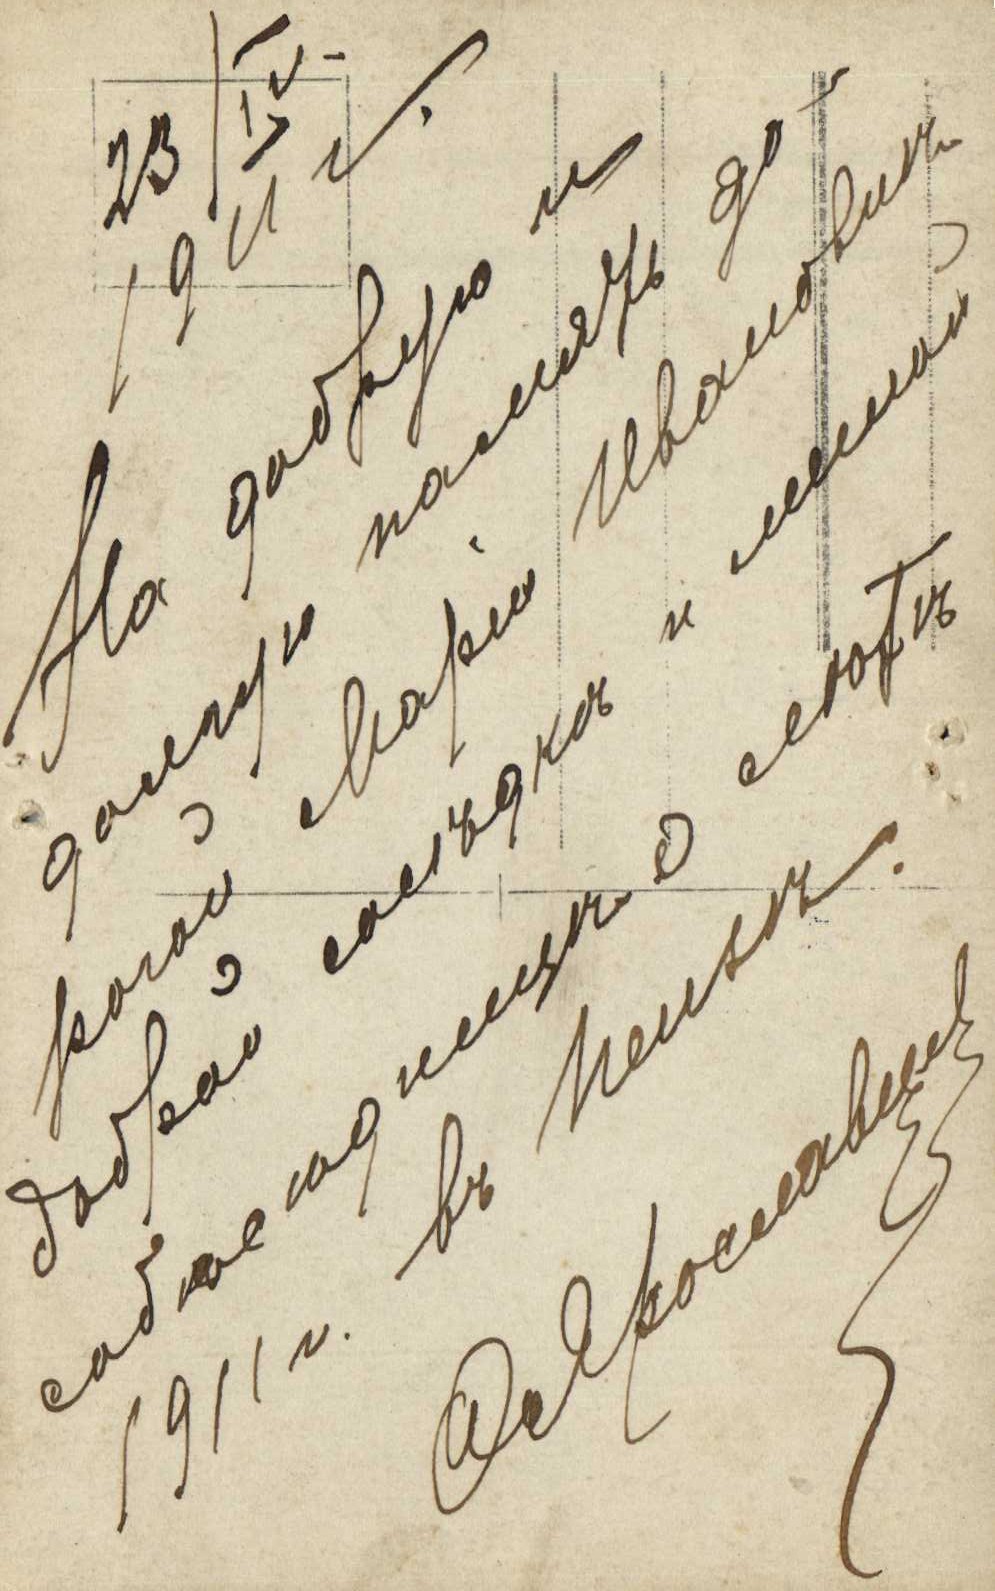 23/IV-
1911 г.
На добрую и
долгую память до-
рогой Маріи Ивановнѣ
доброй сосѣдкѣ и милой
собесѣдницѣ о
1911 г. въ Пензѣ.